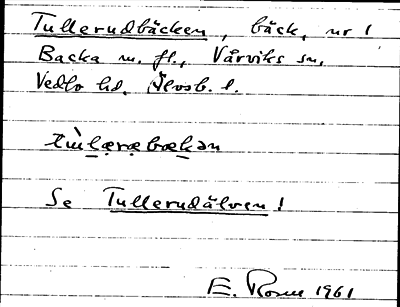 Tullerudbäcken, bäck, nr 1
Backa m. fl., Vårviks sn,
Vedbo hd, Älvsb. l.
Se Tullerudälven!
E. Rosen 1961